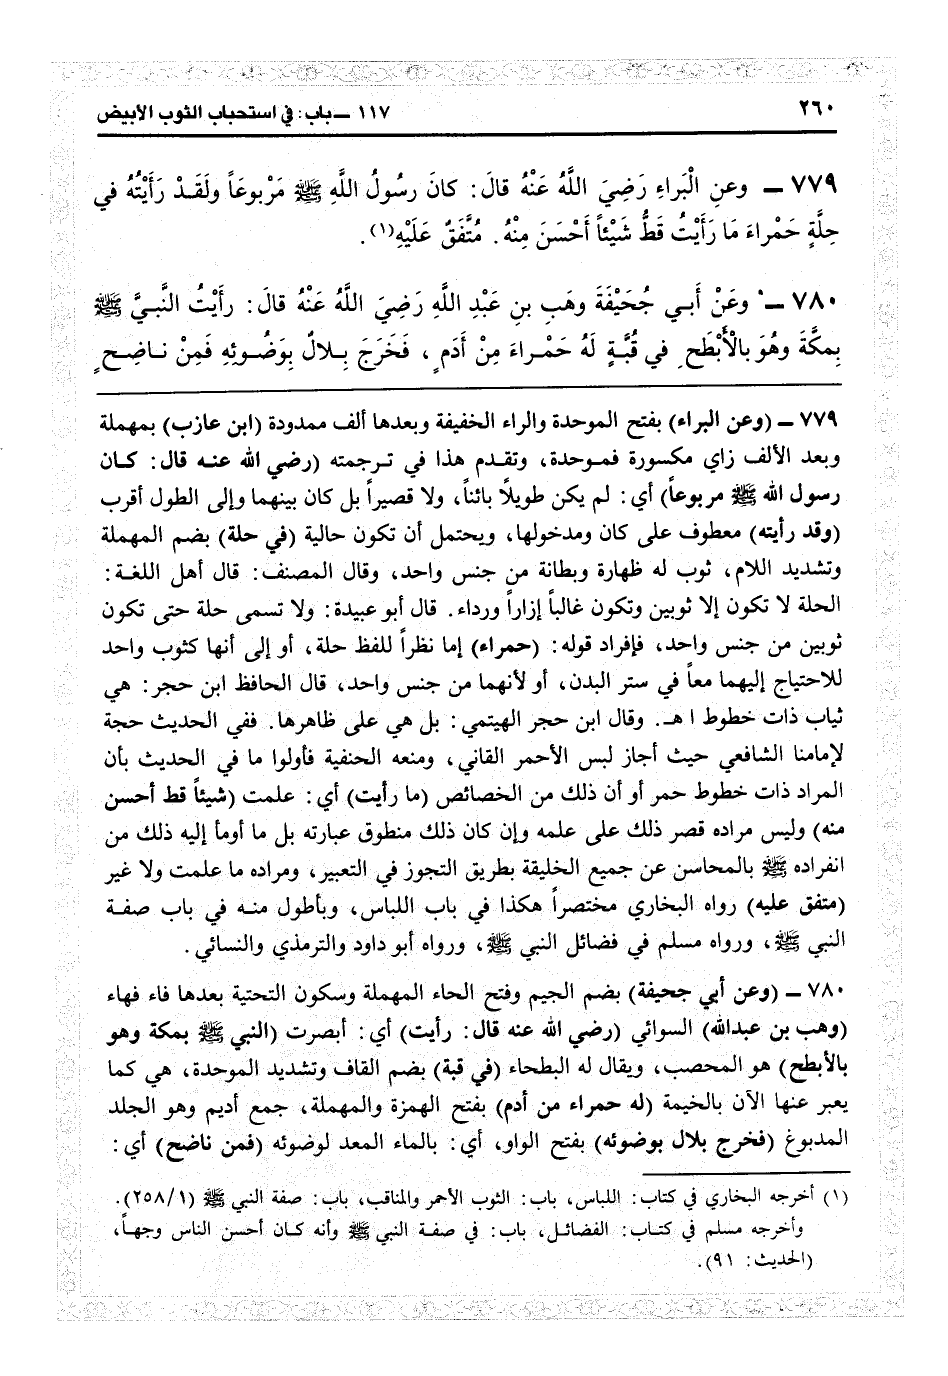 ٢٦٠
١١٧ ـ باب: في استحباب الثوب الأبيض
٧٧٩ ـ وعنِ الْبَراءِ رَضِيَ اللَّهُ عَنْهُ قالَ: كانَ رسُولُ اللَّهِ ﷺ مَرْبوعَاً ولَقَدْ رَأَيْتُهُ في
حِلَّةٍ حَمْراءَ مَا رَأَيْتُ قَطُّ شَيْئاً أَحْسَنَ مِنْهُ. مُتَّفَقٌ عَلَيْهِ(١).
٧٨٠ ـ وعَنْ أَبـي جُحَيْفَةَ وهَبِ بنِ عَبْدِ اللَّهِ رَضِيَ اللَّهُ عَنْهُ قالَ: رأَيْتُ النَّبـيَّ ﷺ
بِمكَّةَ وهُوَ بالْأَبْطَحِ في قُبَّةٍ لَهُ حَمْـراءَ مِنْ أَدَمٍ، فَخَرَجَ بِـلالٌ بِوَضُـوئِهِ فَمِنْ ناضِـحٍ
٧٧٩ ـ (وعن البراء) بفتح الموحدة والراء الخفيفة وبعدها ألف ممدودة (ابن عازب) بمهملة
وبعد الألف زاي مكسورة فمـوحدة، وتقـدم هذا في تـرجمته (رضي الله عنـه قال: كـان
رسول الله ﷺ مربوعاً) أي: لم يكن طويلاً بائناً، ولا قصيراً بل كان بينهما وإلى الطول أقرب
(وقد رأيته) معطوف على كان ومدخولها، ويحتمل أن تكون حالية (في حلة) بضم المهملة
وتشديد اللام، ثوب له ظهارة وبطانة من جنس واحد، وقال المصنف: قال أهل اللغـة:
الحلة لا تكون إلا ثوبين وتكون غالباً إزاراً ورداء. قال أبو عبيدة: ولا تسمى حلة حتى تكون
ثوبين من جنس واحد، فإفراد قوله: (حمراء) إما نظراً للفظ حلة، أو إلى أنها كثوب واحد
للاحتياج إليهما معاً في ستر البدن، أو لأنهما من جنس واحد، قال الحافظ ابن حجر: هي
ثياب ذات خطوط ا هـ. وقال ابن حجر الهيتمي: بل هي على ظاهرها. ففي الحديث حجة
لإمامنا الشافعي حيث أجاز لبس الأحمر القاني، ومنعه الحنفية فأولوا ما في الحديث بأن
المراد ذات خطوط حمر أو أن ذلك من الخصائص (ما رأيت) أي: علمت (شيئاً قط أحسن
منه) وليس مراده قصر ذلك على علمه وإن كان ذلك منطوق عبارته بل ما أومأ إليه ذلك من
انفراده ﷺ بالمحاسن عن جميع الخليقة بطريق التجوز في التعبير، ومراده ما علمت ولا غير
(متفق عليه) رواه البخاري مختصراً هكذا في باب اللباس، وبأطول منـه في باب صفـة
النبي ﷺ، ورواه مسلم في فضائل النبي ﷺ، ورواه أبو داود والترمذي والنسائي.
٧٨٠ ـ (وعن أبي جحيفة) بضم الجيم وفتح الحاء المهملة وسكون التحتية بعدها فاء فهاء
(وهب بن عبدالله) السوائي (رضي الله عنه قال: رأيت) أي: أبصرت (النبي ﷺ بمكة وهو
بالأبطح) هو المحصب، ويقال له البطحاء (في قبة) بضم القاف وتشديد الموحدة، هي كما
يعبر عنها الآن بالخيمة (له حمراء من أدم) بفتح الهمزة والمهملة، جمع أديم وهو الجلد
المدبوغ (فخرج بلال بوضوئه) بفتح الواو، أي: بالماء المعد لوضوئه (فمن ناضح) أي:
(١) أخرجه البخاري في كتاب: اللباس، باب: الثوب الأحمر والمناقب، باب: صفة النبي ﷺ (٢٥٨/١).
وأخرجه مسلم في كتـاب: الفضائـل، باب: في صفـة النبي ﷺ وأنه كـان أحسن الناس وجهـاً،
(الحديث: ٩١).